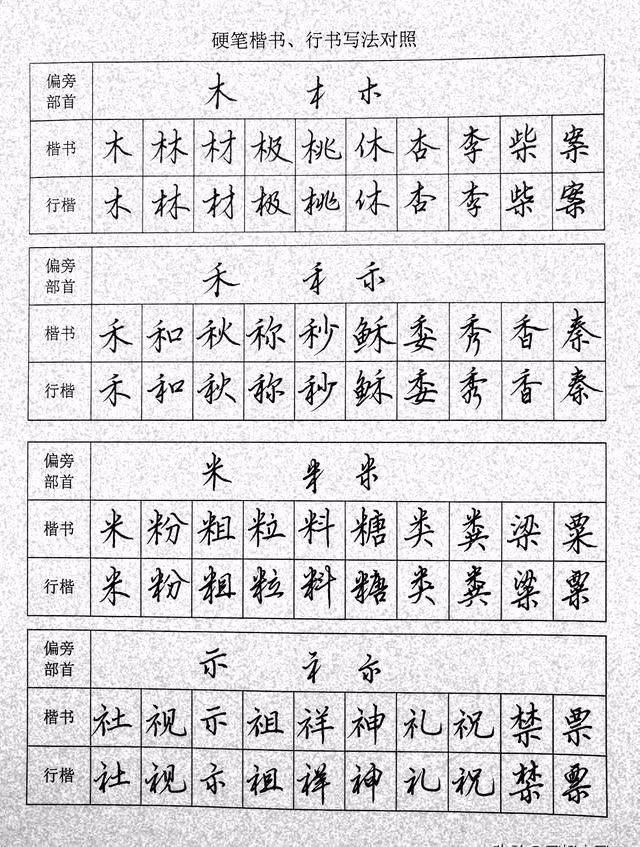 硬笔楷书、行书写法对照
偏旁部首 木 木 木
楷书 木 林 材 极 桃 休 杏 李 柴 案
行楷 木 林 材 极 桃 休 杏 李 柴 案
偏旁部首 禾 禾 禾
楷书 禾 和 秋 称 秒 稣 委 秀 香 秦
行楷 禾 和 秋 称 秒 稣 委 秀 香 秦
偏旁部首 米 米 米
楷书 米 粉 粗 粒 料 糖 类 粪 粱 粟
行楷 米 粉 粗 粒 料 糖 类 粪 粱 粟
偏旁部首 示 礻 示
楷书 社 视 示 祖 祥 神 礼 祝 禁 票
行楷 社 视 示 祖 祥 神 礼 祝 禁 票